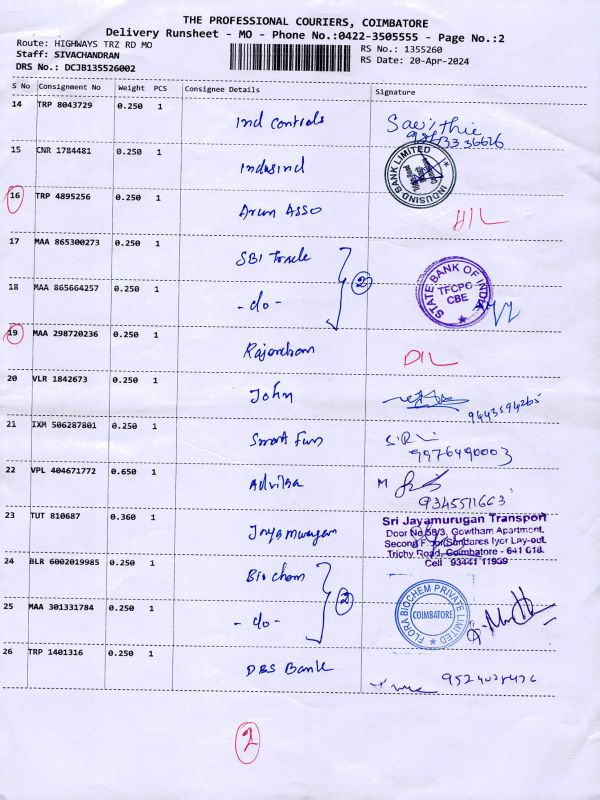 THE PROFESSIONAL COURIERS, COIMBATORE
Delivery Runsheet - MO - Phone No.:0422-3505555 - Page No.:2
Route: HIGHWAYS TRZ RD MO
RS No.: 1355260
Staff: SIVACHANDRAN
RS Date: 20-Apr-2024
DRS No.: DCJB135526002
S No Consignment No Weight PCS Consignee Details Signature
14 TRP 8043729 0.250 1 Ind Controls
15 CNR 1784481 0.250 1 Indusind INDUSIND BANK LIMITED
16 TRP 4895256 0.250 1 Arun Asso
17 MAA 865300273 0.250 1 SBI Trade
18 MAA 865664257 0.250 1 - do - 2 STATE BANK OF INDIA TFCPC CBE
19 MAA 298720236 0.250 1 DIL
20 VLR 1842673 0.250 1 John 9443594265
21 IXM 506287801 0.250 1 Smart Fun 9976490003
22 VPL 404671772 0.650 1 M 9345571663
23 TUT 810687 0.360 1
Sri Jayamurugan Transport
Door No.58/3, Gowtham Apartment,
Second Floor, Iyer Lay-out,
Trichy Road, Coimbatore - 641 018.
Cell 93441 11999
24 BLR 6002019985 0.250 1 Bio chem
25 MAA 301331784 0.250 1 - do - 2 FLORA BIOCHEM PRIVATE LIMITED COIMBATORE
26 TRP 1401316 0.250 1 DBS Bank
2